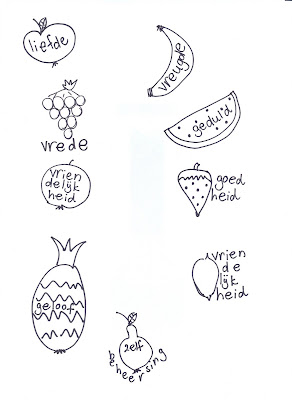 liefde
vreugde
vrede
geduld
vrien
delijk
heid
goed
heid
geloof
vrien
de
lijk
heid
zelf
beheersing